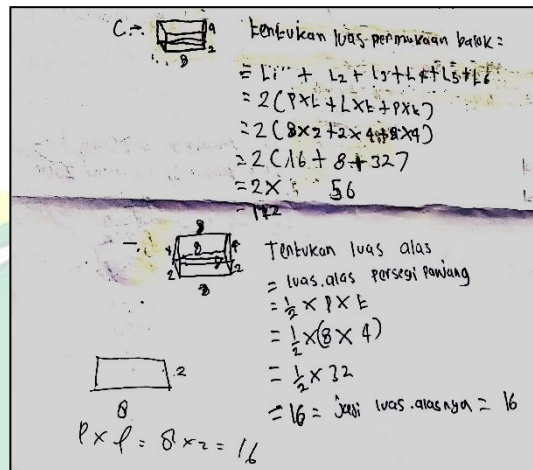 C. →
4
2
8
tentukan luas permukaan balok =
= L1 + L2 + L3 + L4 + L5 + L6
= 2 (P×L + L×t + P×t)
= 2 (8×2 + 2×4 + 8×4)
= 2 (16 + 8 + 32)
= 2 × 56
= 112
8
8
4
4
2
2
8
Tentukan luas alas
= luas alas persegi panjang
= 1/2 × P × t
= 1/2 × (8 × 4)
= 1/2 × 32
= 16 = jadi luas alasnya = 16
2
8
P × l = 8 × 2 = 16